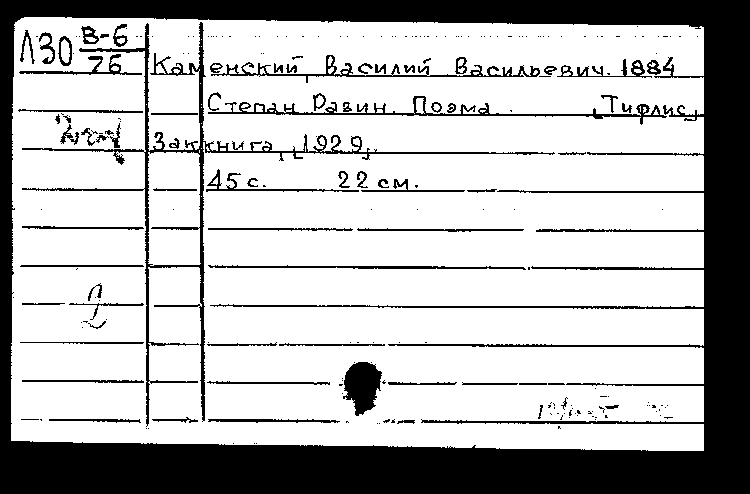 Л30 В-6
76
Каменский, Василий Васильевич. 1884
Степан Разин. Поэма. [Тифлис]
Заккнига, [1929].
45 с. 22 см.
2